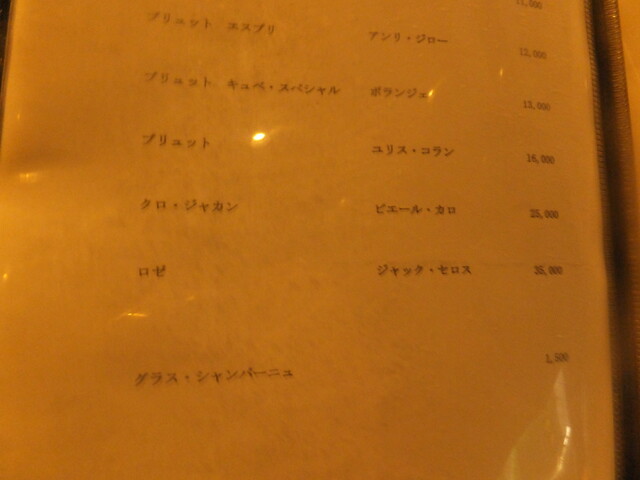 11,000
ブリュット エスプリ アンリ・ジロー 12,000
ブリュット キュベ・スペシャル ボランジェ 13,000
ブリュット ユリス・コラン 16,000
クロ・ジャカン ピエール・カロ 25,000
ロゼ ジャック・セロス 35,000
グラス・シャンパーニュ 1,500